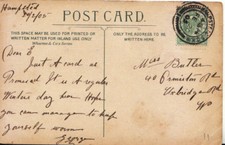 Hampstead
POST CARD.
THIS SPACE MAY BE USED FOR PRINTED OR
WRITTEN MATTER FOR INLAND USE ONLY
WITHOUT EXTRA
ONLY THE ADDRESS TO BE
WRITTEN HERE.
Dear
Just A card as
Promised It is A regular
Winters day here Hope
you can manage to keep
yourself warm
George
Miss Butler
40 Ormiston Rd
Uxbridge Rd